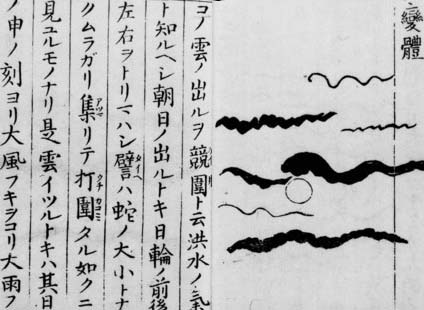 變體
コノ雲ノ出ルヲ競圍ト云洪水ノ氣
ト知ルヘシ朝日ノ出ルトキ日輪ノ前後
左右ヲトリマハシ譬ハ蛇ノ大小トナ
クムラガリ集リテ打圍タル如クニ
見ユルモノナリ是雲イツルトキハ其日
ノ申ノ刻ヨリ大風フキヲコリ大雨フ